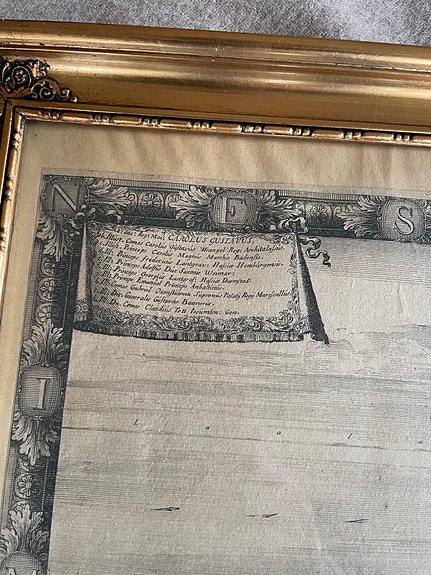 N E S
Sac: Reg: Maj. CAROLUS GUSTAVUS.
Illust. Comes Carolus Gustavus Wrangel Regi Architalassus
Ill. Princeps Carolus Magnus Marchio Badensis.
Ill. Princeps Fredericus Lantgravi: Hassiæ Homburgensis.
Ill. Princeps Adolfus Dux Saxoniæ Weimar:
Ill. Princeps Georgius Lantgraf: Hassiæ Darmstad:
Ill. Princeps Emanuel Princeps Anhaltinus.
Ill. Comes Gabriel Oxenstiern Supremus Palatij Regij Marschallus.
Ill. Dn. Generalis Gustavus Baneerus.
Ill. Dn. Comes Claudius Tott
I
l a a l a